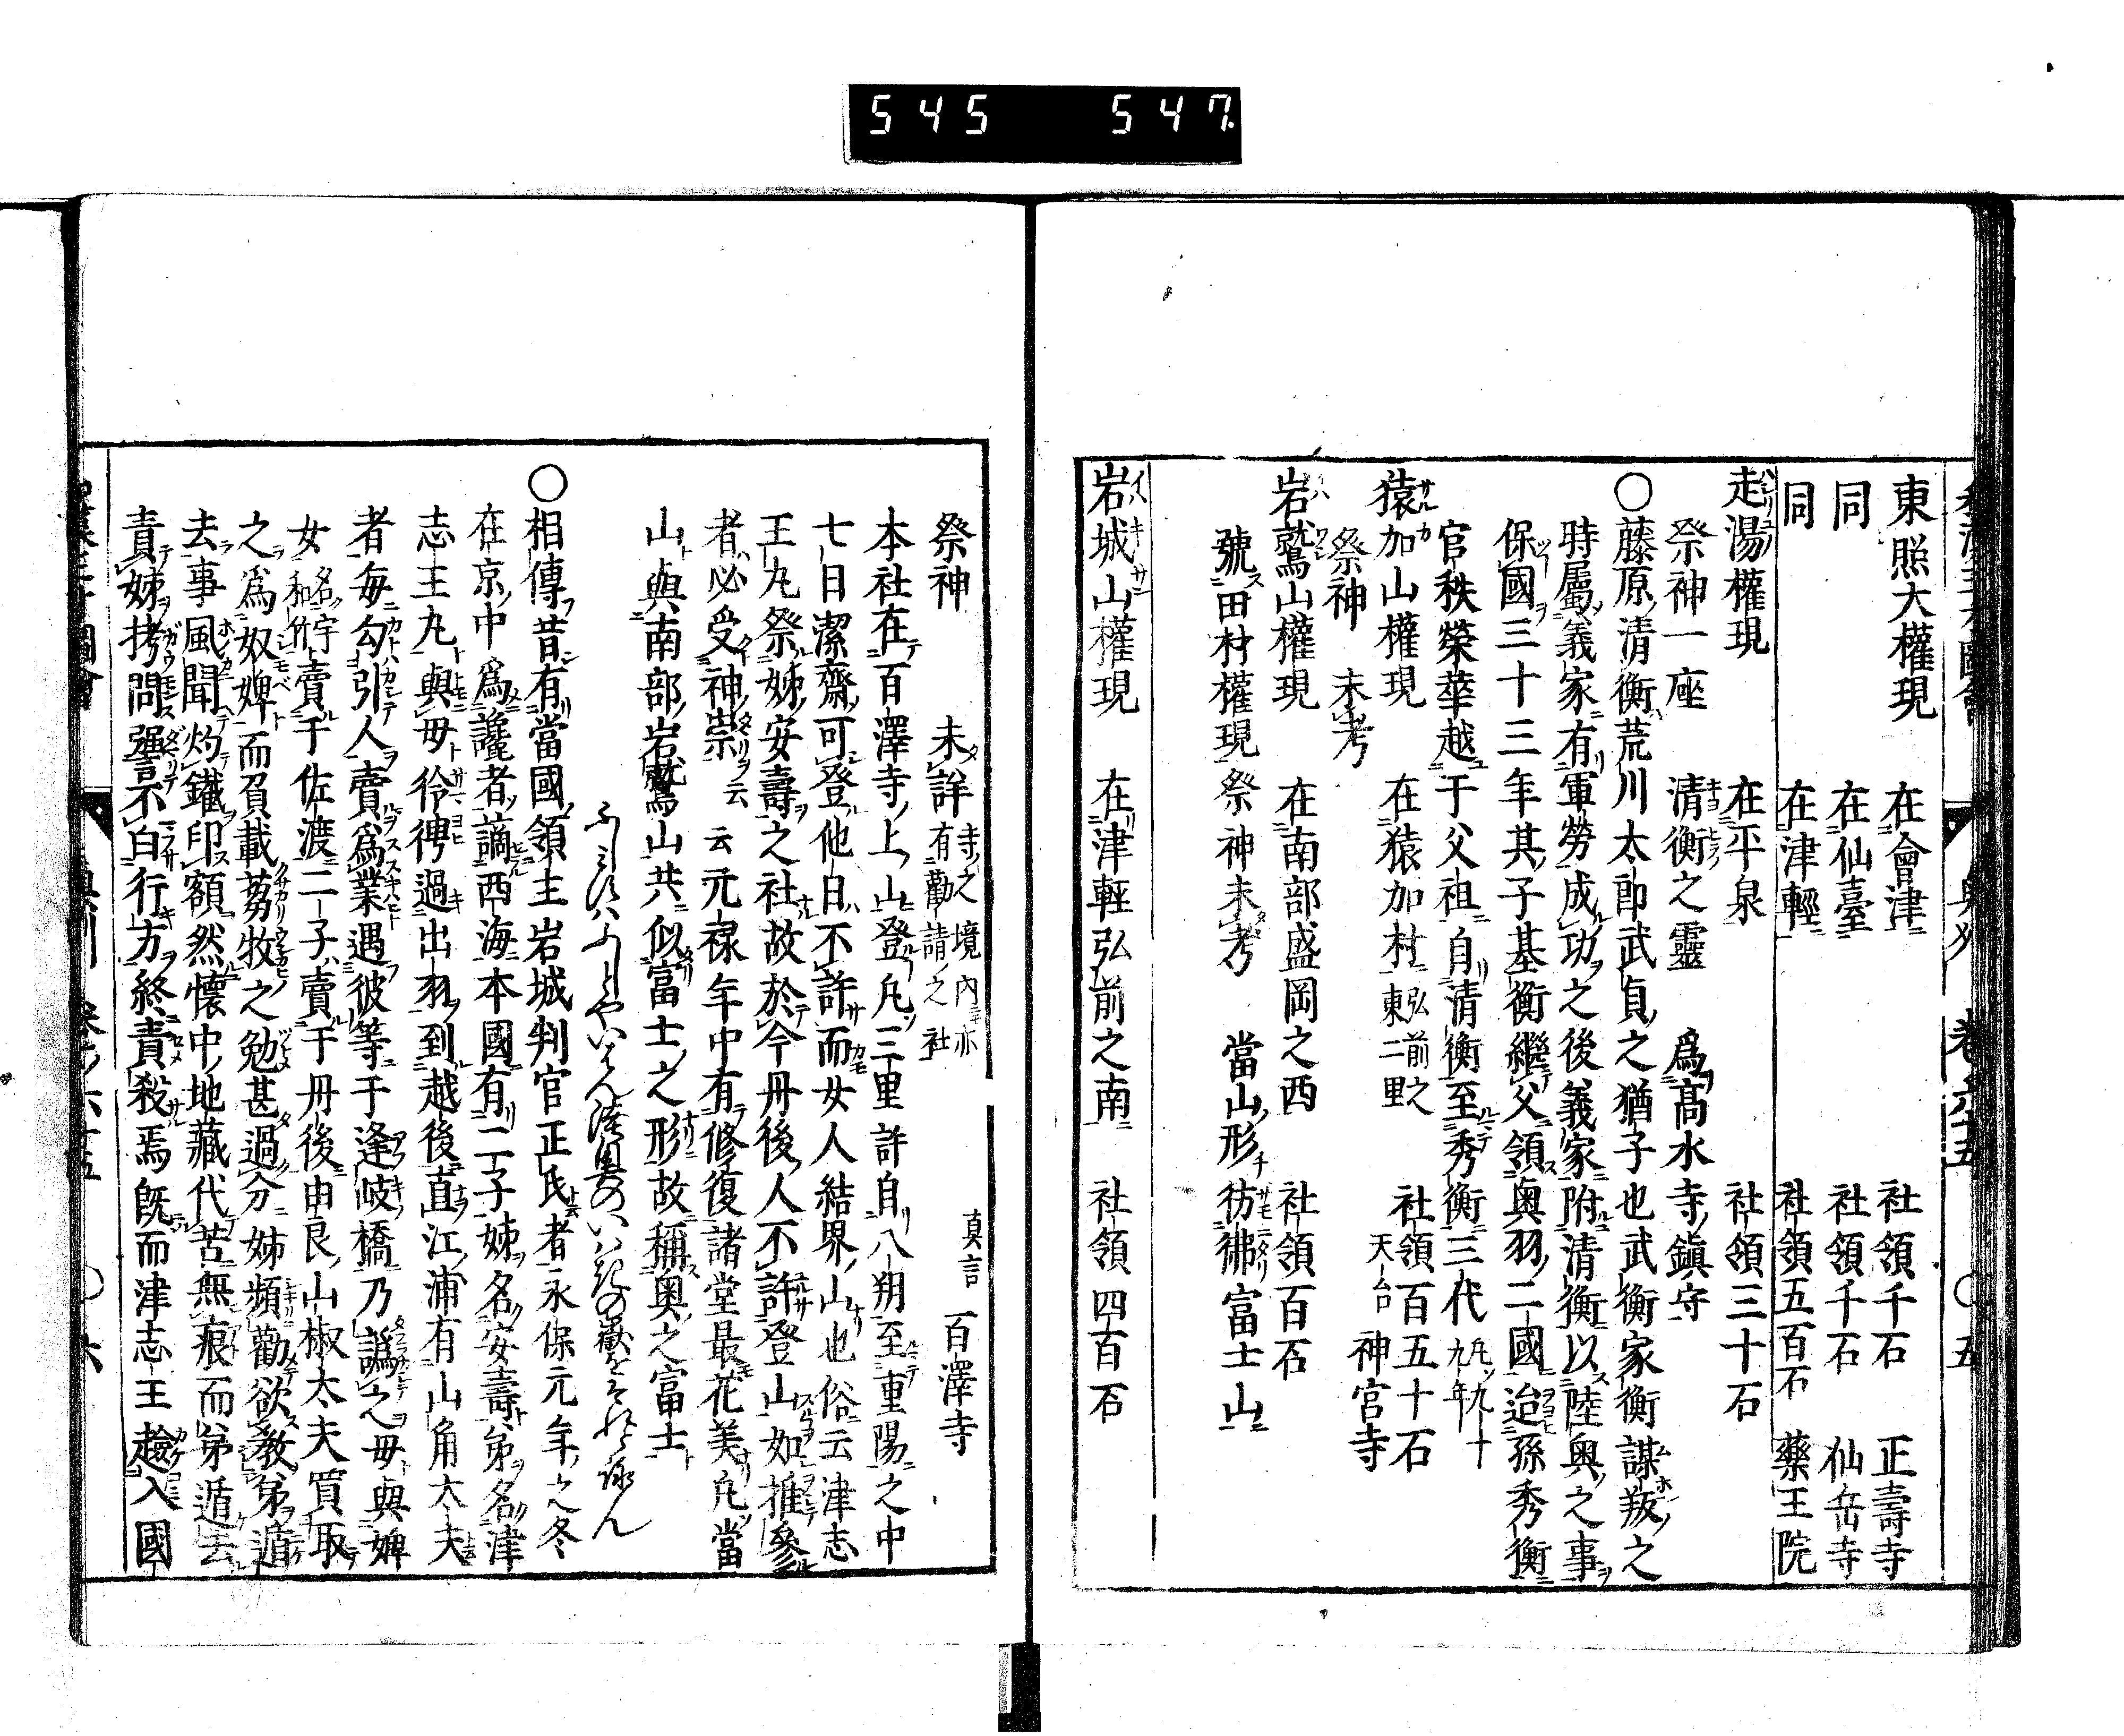 545 547
東照大權現 在會津 社領千石 正壽寺
同 在仙臺 社領千石 仙岳寺
同 在津輕 社領五百石 藥王院
走湯權現 在平泉 社領三十石
祭神一座 清衡之靈 爲高水寺鎮守
○藤原清衡荒川太郎武貞之猶子也武衡家衡謀叛之
時屬義家有軍勞成功之後義家附清衡以陸奥之事
保國三十三年其子基衡繼父領奥羽二國迨孫秀衡
官秩榮華越于父祖自清衡至秀衡三代凡九十九年
猿加山權現 在猿加村弘前之東二里 社領百五十石 天台 神宮寺
祭神 未考
岩鷲山權現 在南部盛岡之西 社領百石
號田村權現 祭神未考 當山形彷彿富士山
岩城山權現 在津輕弘前之南 社領四百石
祭神 未詳 寺之境内亦有勸請之社 真言 百澤寺
本社在百澤寺上山登凡三里許自八朔至重陽之中
七日潔齋可登他日不許而女人結界山也俗云津志
王丸祭姊安壽之社故於今丹後人不許登山如推參
者必受神祟云云元禄年中有修復諸堂最花美凡當
山與南部岩鷲山共似富士之形故稱奥之富士
○相傳昔有當國領主岩城判官正氏者永保元年之冬
在京中爲讒者謫西海本國有二子姊名安壽弟名津
志王丸與母伶俜過出羽到越後直江浦有山角太夫
者毎勾引人賣爲業遇彼等于逢岐橋乃譌之母與婢
女名宇和竹賣于佐渡二子賣于丹後由良山椒太夫買取
之爲奴婢而負載芻牧之勉甚過分姊頻勸欲教弟遁
去事風聞灼鐵印額然懷中地藏代苦無痕而弟遁去
責姊拷問強不白行方終責殺焉既而津志王趨入國